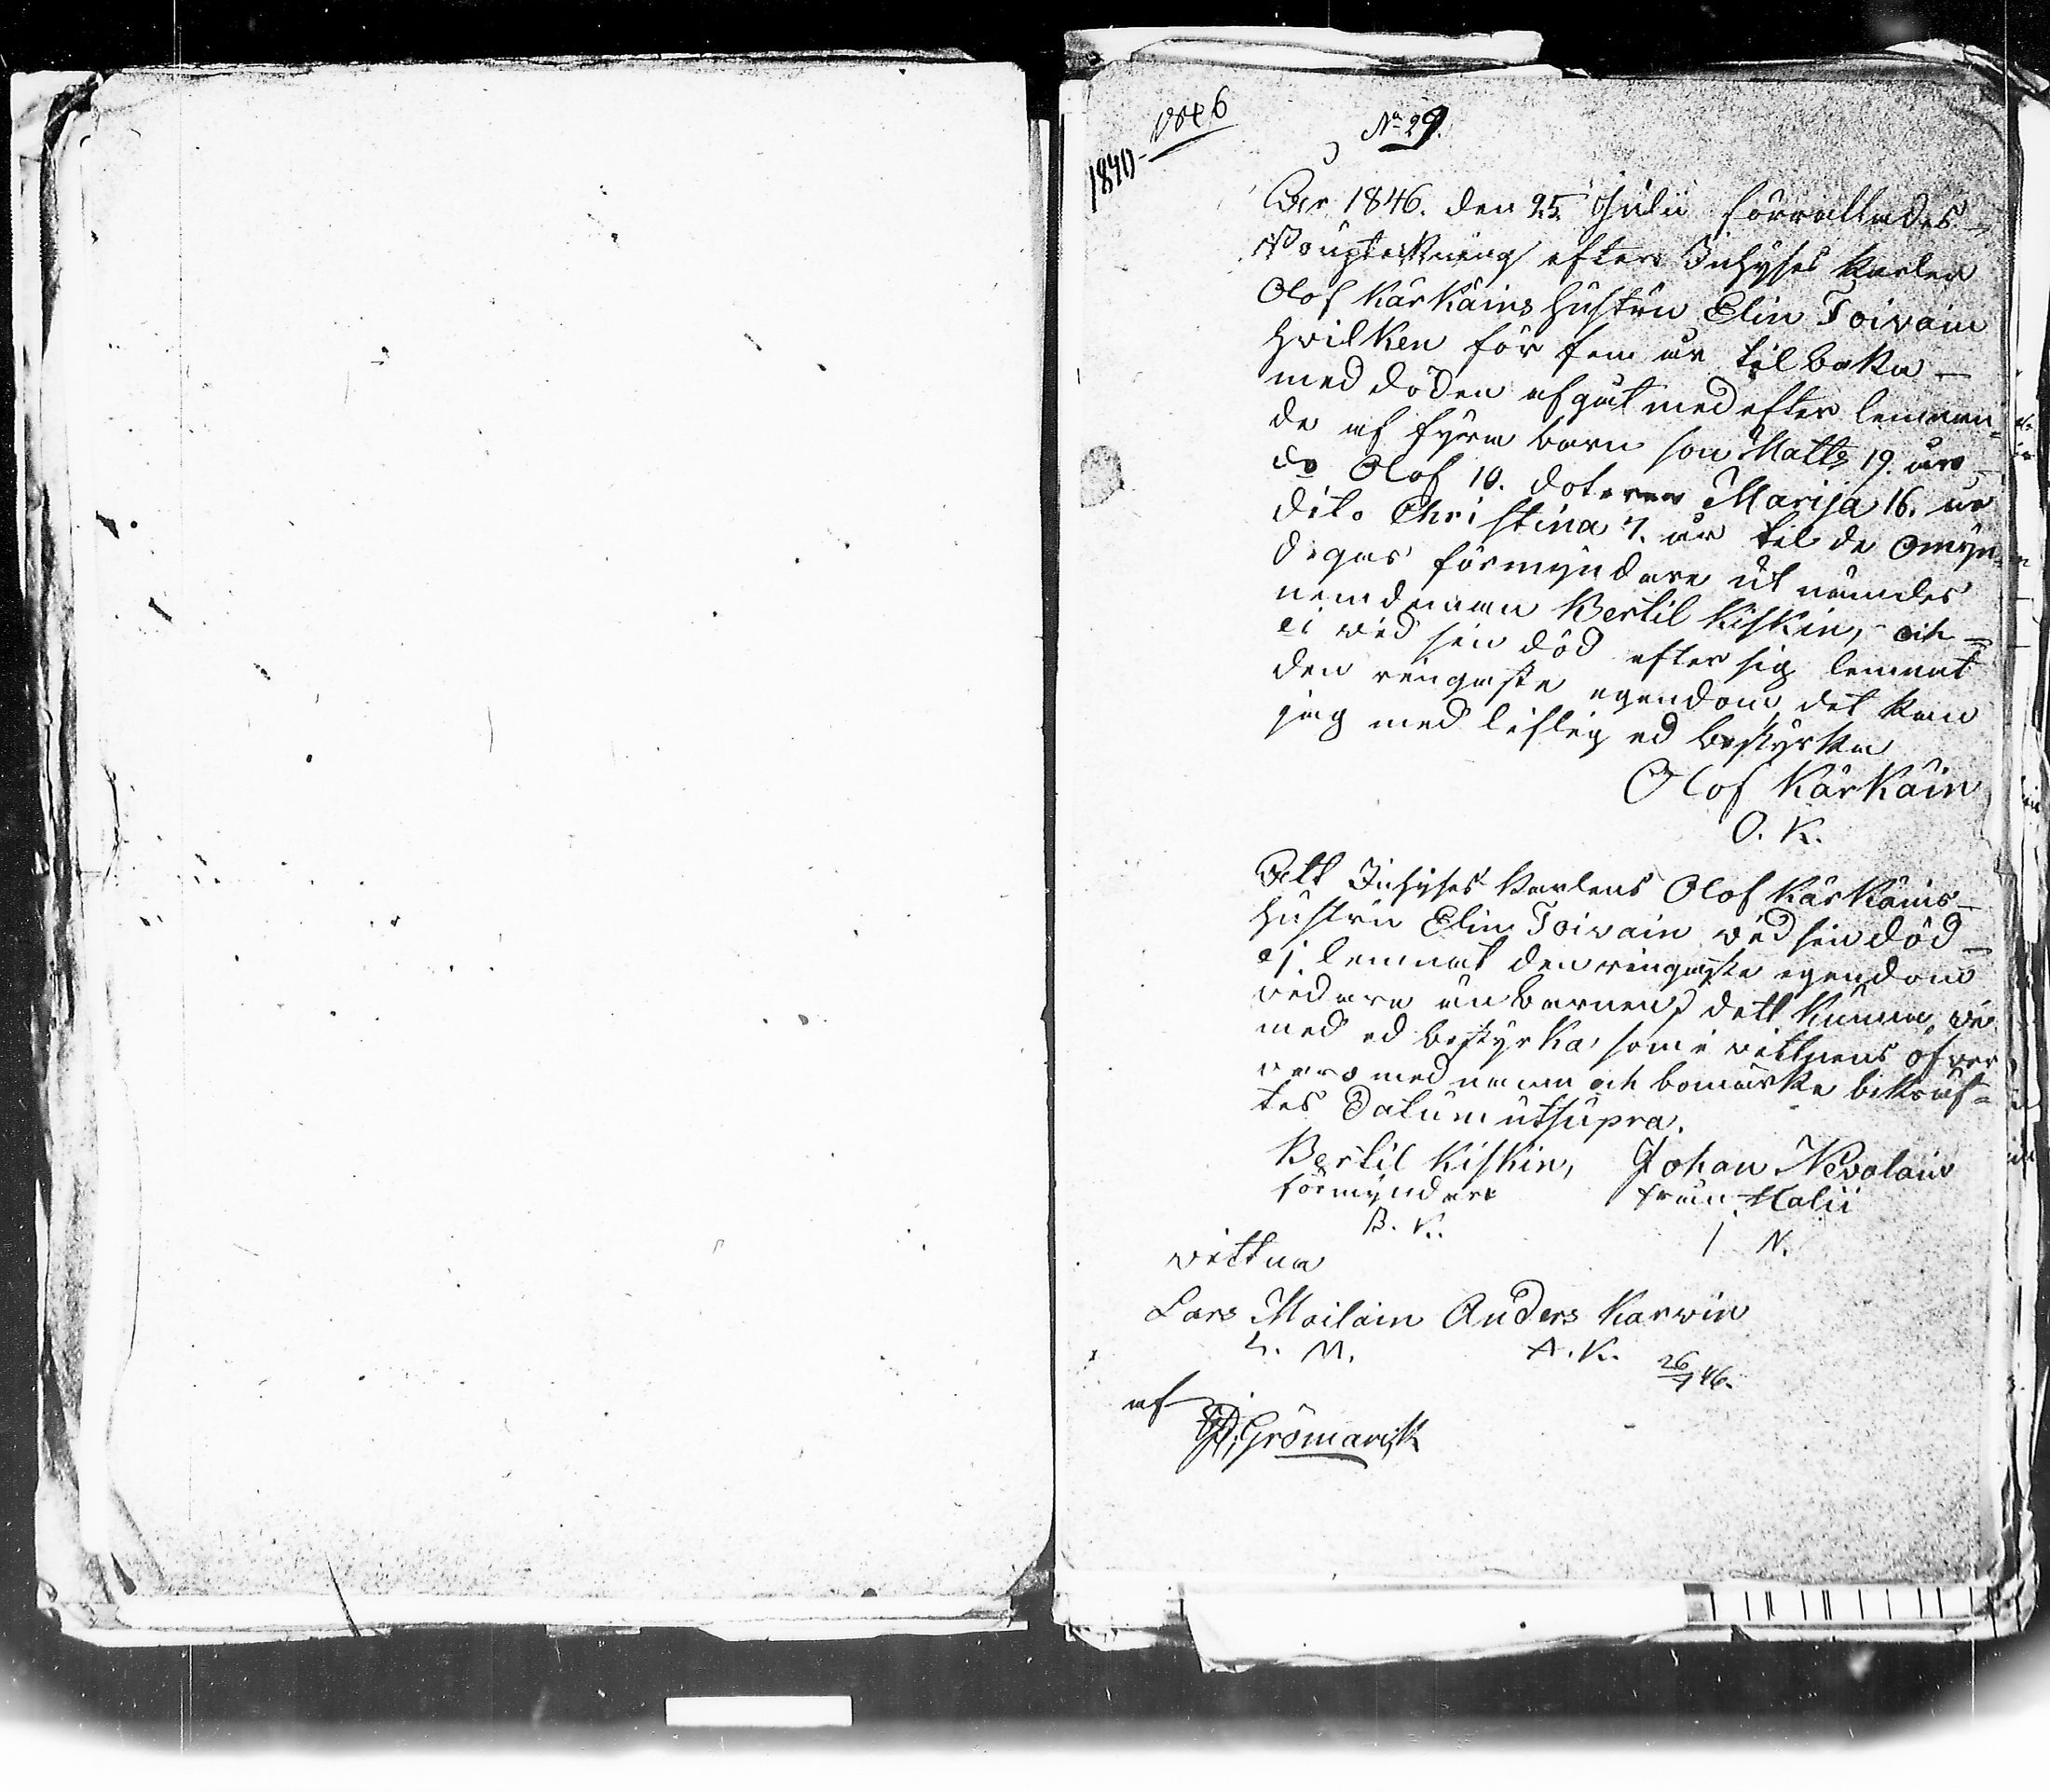 1840-1846
No 29.
Åår 1846. den 25. Julii förrättades
Boupteckning efter Inhyses karlen
Olof Kärkäins hustru Elin Toivain
hvilken för fem år tilbaka
med döden afgåt med efter lemnan-
de af fyra barn son Matts 19. år
do Olof 10. doteren Marija 16. år
dito Christina 7. år til de omyn-
digas förmyndare utnämdes
nemdeman Bertil Kiskin, och
ei wid sin död efter sig lemnat
den ringaste egendom det kan
jag med liflig ed bestyrka
Olof Kärkäin
O. K.
Att Inhyses karlens Olof Kärkäins
hustru Elin Toivain wid sin död
ej lemnat den ringaste egendom
vidare än barnen dett kunna wi
med ed bestyrka, som i vittnens öfver
varo med namn och bomärke bekräf-
tas Datum utsupra.
Bertil Kiskin, Johan Nevalain
förmyndare från Halii
B. K. I N.
wittna
Lars Moilain Anders Karwin
L. M. A. K. 26/7 46.
af
Grömarck